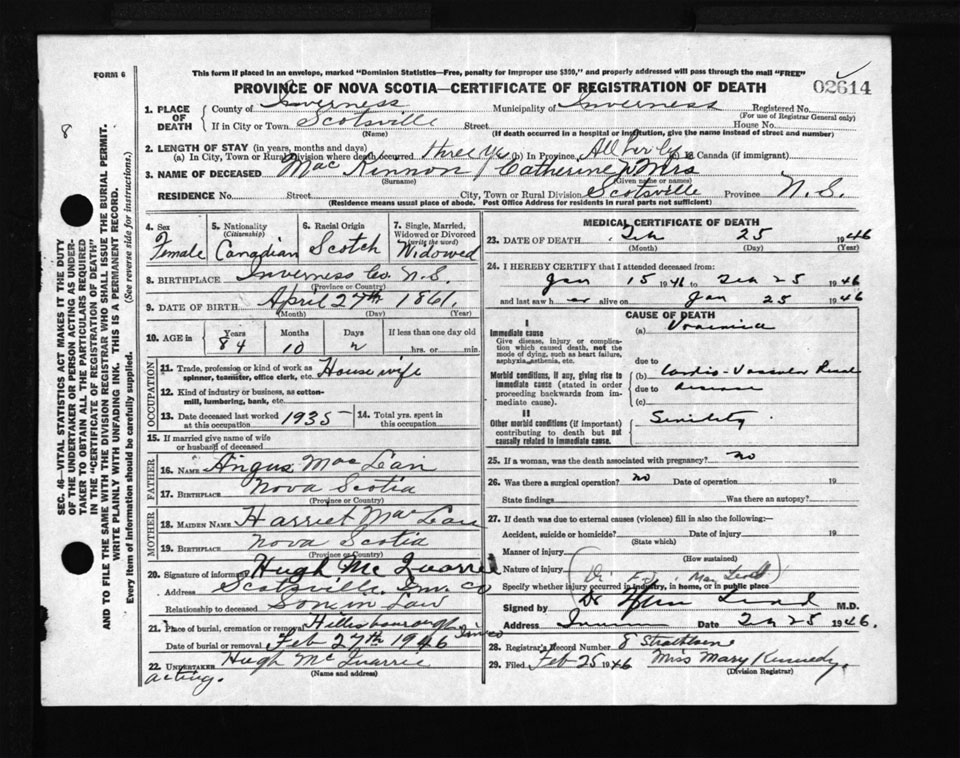 FORM 6
This form if placed in an envelope, marked "Dominion Statistics—Free, penalty for improper use $300," and properly addressed will pass through the mail "FREE"
PROVINCE OF NOVA SCOTIA—CERTIFICATE OF REGISTRATION OF DEATH
02614
8
SEC. 46—VITAL STATISTICS ACT MAKES IT THE DUTY
OF THE UNDERTAKER OR PERSON ACTING AS UNDER-
TAKER TO OBTAIN ALL THE PARTICULARS REQUIRED
IN THE "CERTIFICATE OF REGISTRATION OF DEATH"
AND TO FILE THE SAME WITH THE DIVISION REGISTRAR WHO SHALL ISSUE THE BURIAL PERMIT.
WRITE PLAINLY WITH UNFADING INK. THIS IS A PERMANENT RECORD.
Every item of information should be carefully supplied. (See reverse side for instructions.)
1. PLACE OF DEATH
County of Inverness Municipality of Inverness Registered No.
(For use of Registrar General only)
If in City or Town Scotsville Street House No.
(Name) (If death occurred in a hospital or institution, give the name instead of street and number)
2. LENGTH OF STAY (in years, months and days)
(a) In City, Town or Rural Division where death occurred three yrs (b) In Province, All her life (c) In Canada (if immigrant)
3. NAME OF DECEASED Mac Kinnon Catherine Mrs
(Surname) (Given name or names)
RESIDENCE No. Street City, Town or Rural Division Scotsville Province N.S.
(Residence means usual place of abode. Post Office Address for residents in rural parts not sufficient)
4. Sex Female
5. Nationality (Citizenship) Canadian
6. Racial Origin Scotch
7. Single, Married, Widowed or Divorced (write the word) Widowed
8. BIRTHPLACE Inverness Co. N.S.
(Province or Country)
9. DATE OF BIRTH April 27th 1861.
(Month) (Day) (Year)
10. AGE in Years 84 Months 10 Days If less than one day old hrs. or min.
OCCUPATION
11. Trade, profession or kind of work as spinner, teamster, office clerk, etc. House wife
12. Kind of industry or business, as cotton-mill, lumbering, bank, etc.
13. Date deceased last worked at this occupation 1935
14. Total yrs. spent in this occupation
15. If married give name of wife or husband of deceased
FATHER
16. NAME Angus Mac Lean
17. BIRTHPLACE Nova Scotia
(Province or Country)
MOTHER
18. MAIDEN NAME Harriet Mac Lean
19. BIRTHPLACE Nova Scotia
(Province or Country)
20. Signature of informant Hugh Mc Quarrie
Address Scotsville Inv. Co
Relationship to deceased Son in Law
21. Place of burial, cremation or removal Hillsborough Inv Co
Date of burial or removal Feb 27th 1946
22. UNDERTAKER Hugh Mc Quarrie
acting. (Name and address)
MEDICAL CERTIFICATE OF DEATH
23. DATE OF DEATH Feb 25 1946
(Month) (Day) (Year)
24. I HEREBY CERTIFY that I attended deceased from:
Jan 15 1946 to Feb 25 1946
and last saw her alive on Jan 25 1946
CAUSE OF DEATH
I
Immediate cause
Give disease, injury or complication which caused death, not the mode of dying, such as heart failure, asphyxia, asthenia, etc.
(a) Uraemia
due to
Morbid conditions, if any, giving rise to immediate cause (stated in order proceeding backwards from immediate cause).
(b) Cardio-Vascular Renal
due to disease
(c)
II
Other morbid conditions (if important) contributing to death but not causally related to immediate cause.
Senility
25. If a woman, was the death associated with pregnancy? no
26. Was there a surgical operation? no Date of operation 19
State findings Was there an autopsy?
27. If death was due to external causes (violence) fill in also the following:—
Accident, suicide or homicide? Date of injury 19
(State which)
Manner of injury
(How sustained)
Nature of injury
Specify whether injury occurred in industry, in home, or in public place
Signed by Dr M.D.
Address Date Feb 25 1946.
28. Registrar's Record Number 8 Strathlorne
29. Filed Feb 25 1946 Miss Mary Kennedy.
(Division Registrar)